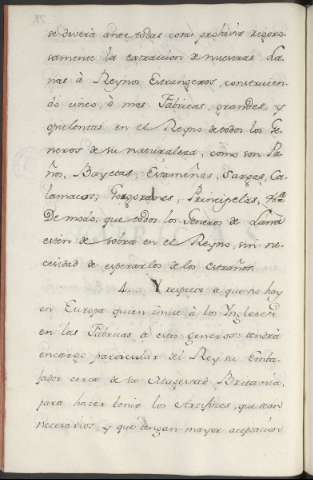 se deverá ante todas cosas prohivir rigoro-
samente la extraccion de nuestras La-
nas á Reynos Estrangeros, construien-
do cinco, ó mas Fábricas, grandes, y
opulentas en el Reyno de todos los Ge-
neros de su naturaleza, como son Pa-
ños, Bayetas, Estameñas, Sargas, Ca-
lamacos, Gorgoranes, Principelas, &a.
De modo, que todos los Generos de Lana
esten de sobra en el Reyno, sin ne-
cesidad de esperarlos de los estraños.
4. Y respecto a que no hay
en Europa quien imite á los Ingleses
en las Fábricas de estos generos: tendrá
encargo particular del Rey su Emba-
jador cerca de su Magestad Britania,
para hacer venir los Artifices, que sean
necesarios, y que tengan mayor aceptacion